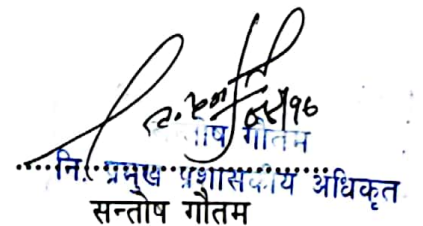 तोष गौतम
नि. प्रमुख प्रशासकीय अधिकृत
सन्तोष गौतम